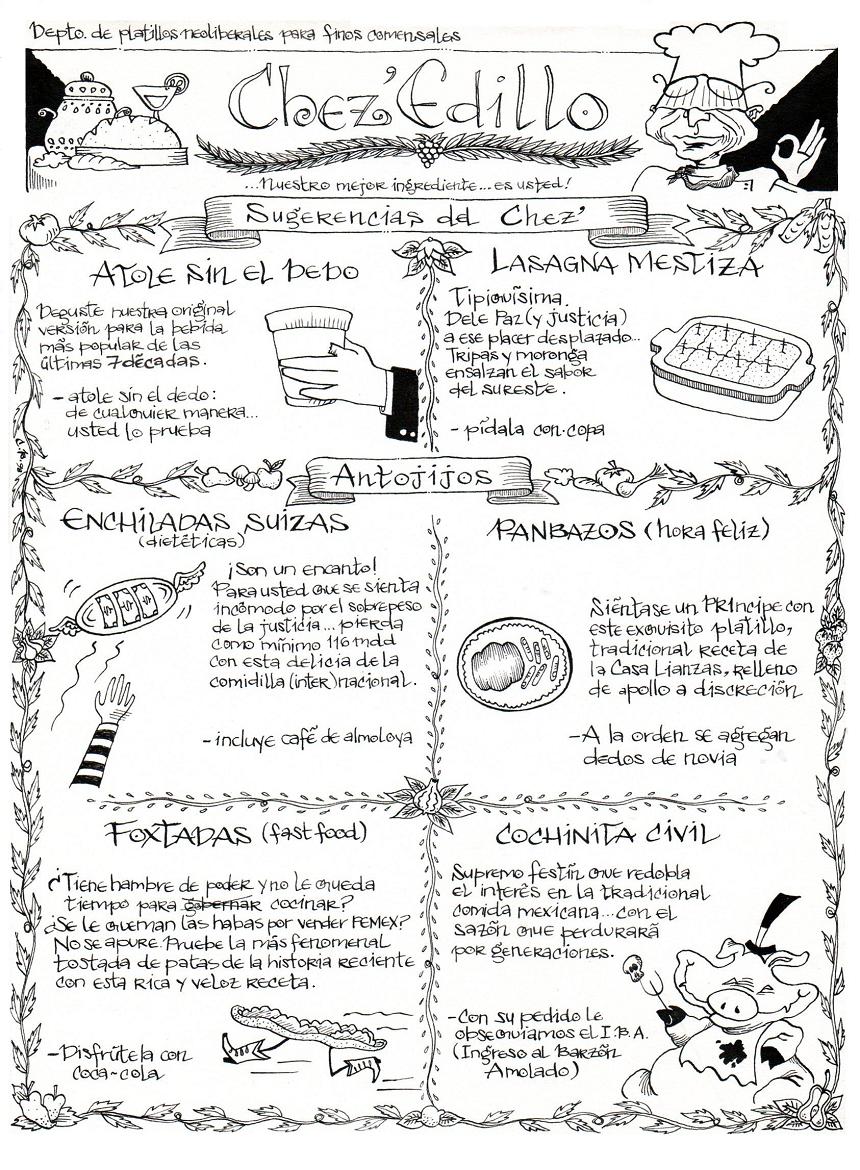 Depto. de platillos neoliberales para finos comensales
Chez' Edillo
...nuestro mejor ingrediente... es usted!
Sugerencias del Chez'
ATOLE SIN EL DEDO
Deguste nuestra original
versión para la bebida
más popular de las
últimas 7 décadas.
- atole sin el dedo:
de cualquier manera...
usted lo prueba
LASAGNA MESTIZA
Tipiquísima.
Dele Paz (y justicia)
a ese placer desplazado...
Tripas y moronga
ensalzan el sabor
del sureste.
- pídala con-copa
Antojijos
ENCHILADAS SUIZAS
(dietéticas)
¡Son un encanto!
Para usted que se sienta
incómodo por el sobrepeso
de la justicia... pierda
como mínimo 116 mdd
con esta delicia de la
comidilla (inter)nacional.
- incluye café de almoloya
PANBAZOS (hora feliz)
Siéntase un PRIncipe con
este exquisito platillo,
tradicional receta de
la Casa Lianzas, relleno
de apollo a discreción
- A la orden se agregan
dedos de novia
FOXTADAS (fast food)
¿Tiene hambre de poder y no le queda
tiempo para gobernar cocinar?
¿Se le queman las habas por vender PEMEX?
No se apure. Pruebe la más fenomenal
tostada de patas de la historia reciente
con esta rica y veloz receta.
- Disfrútela con
coca-cola
COCHINITA CIVIL
Supremo festín que redobla
el interés en la tradicional
comida mexicana... con el
sazón que perdurará
por generaciones.
- Con su pedido le
obsequiamos el I.B.A.
(Ingreso al Barzón
Amolado)